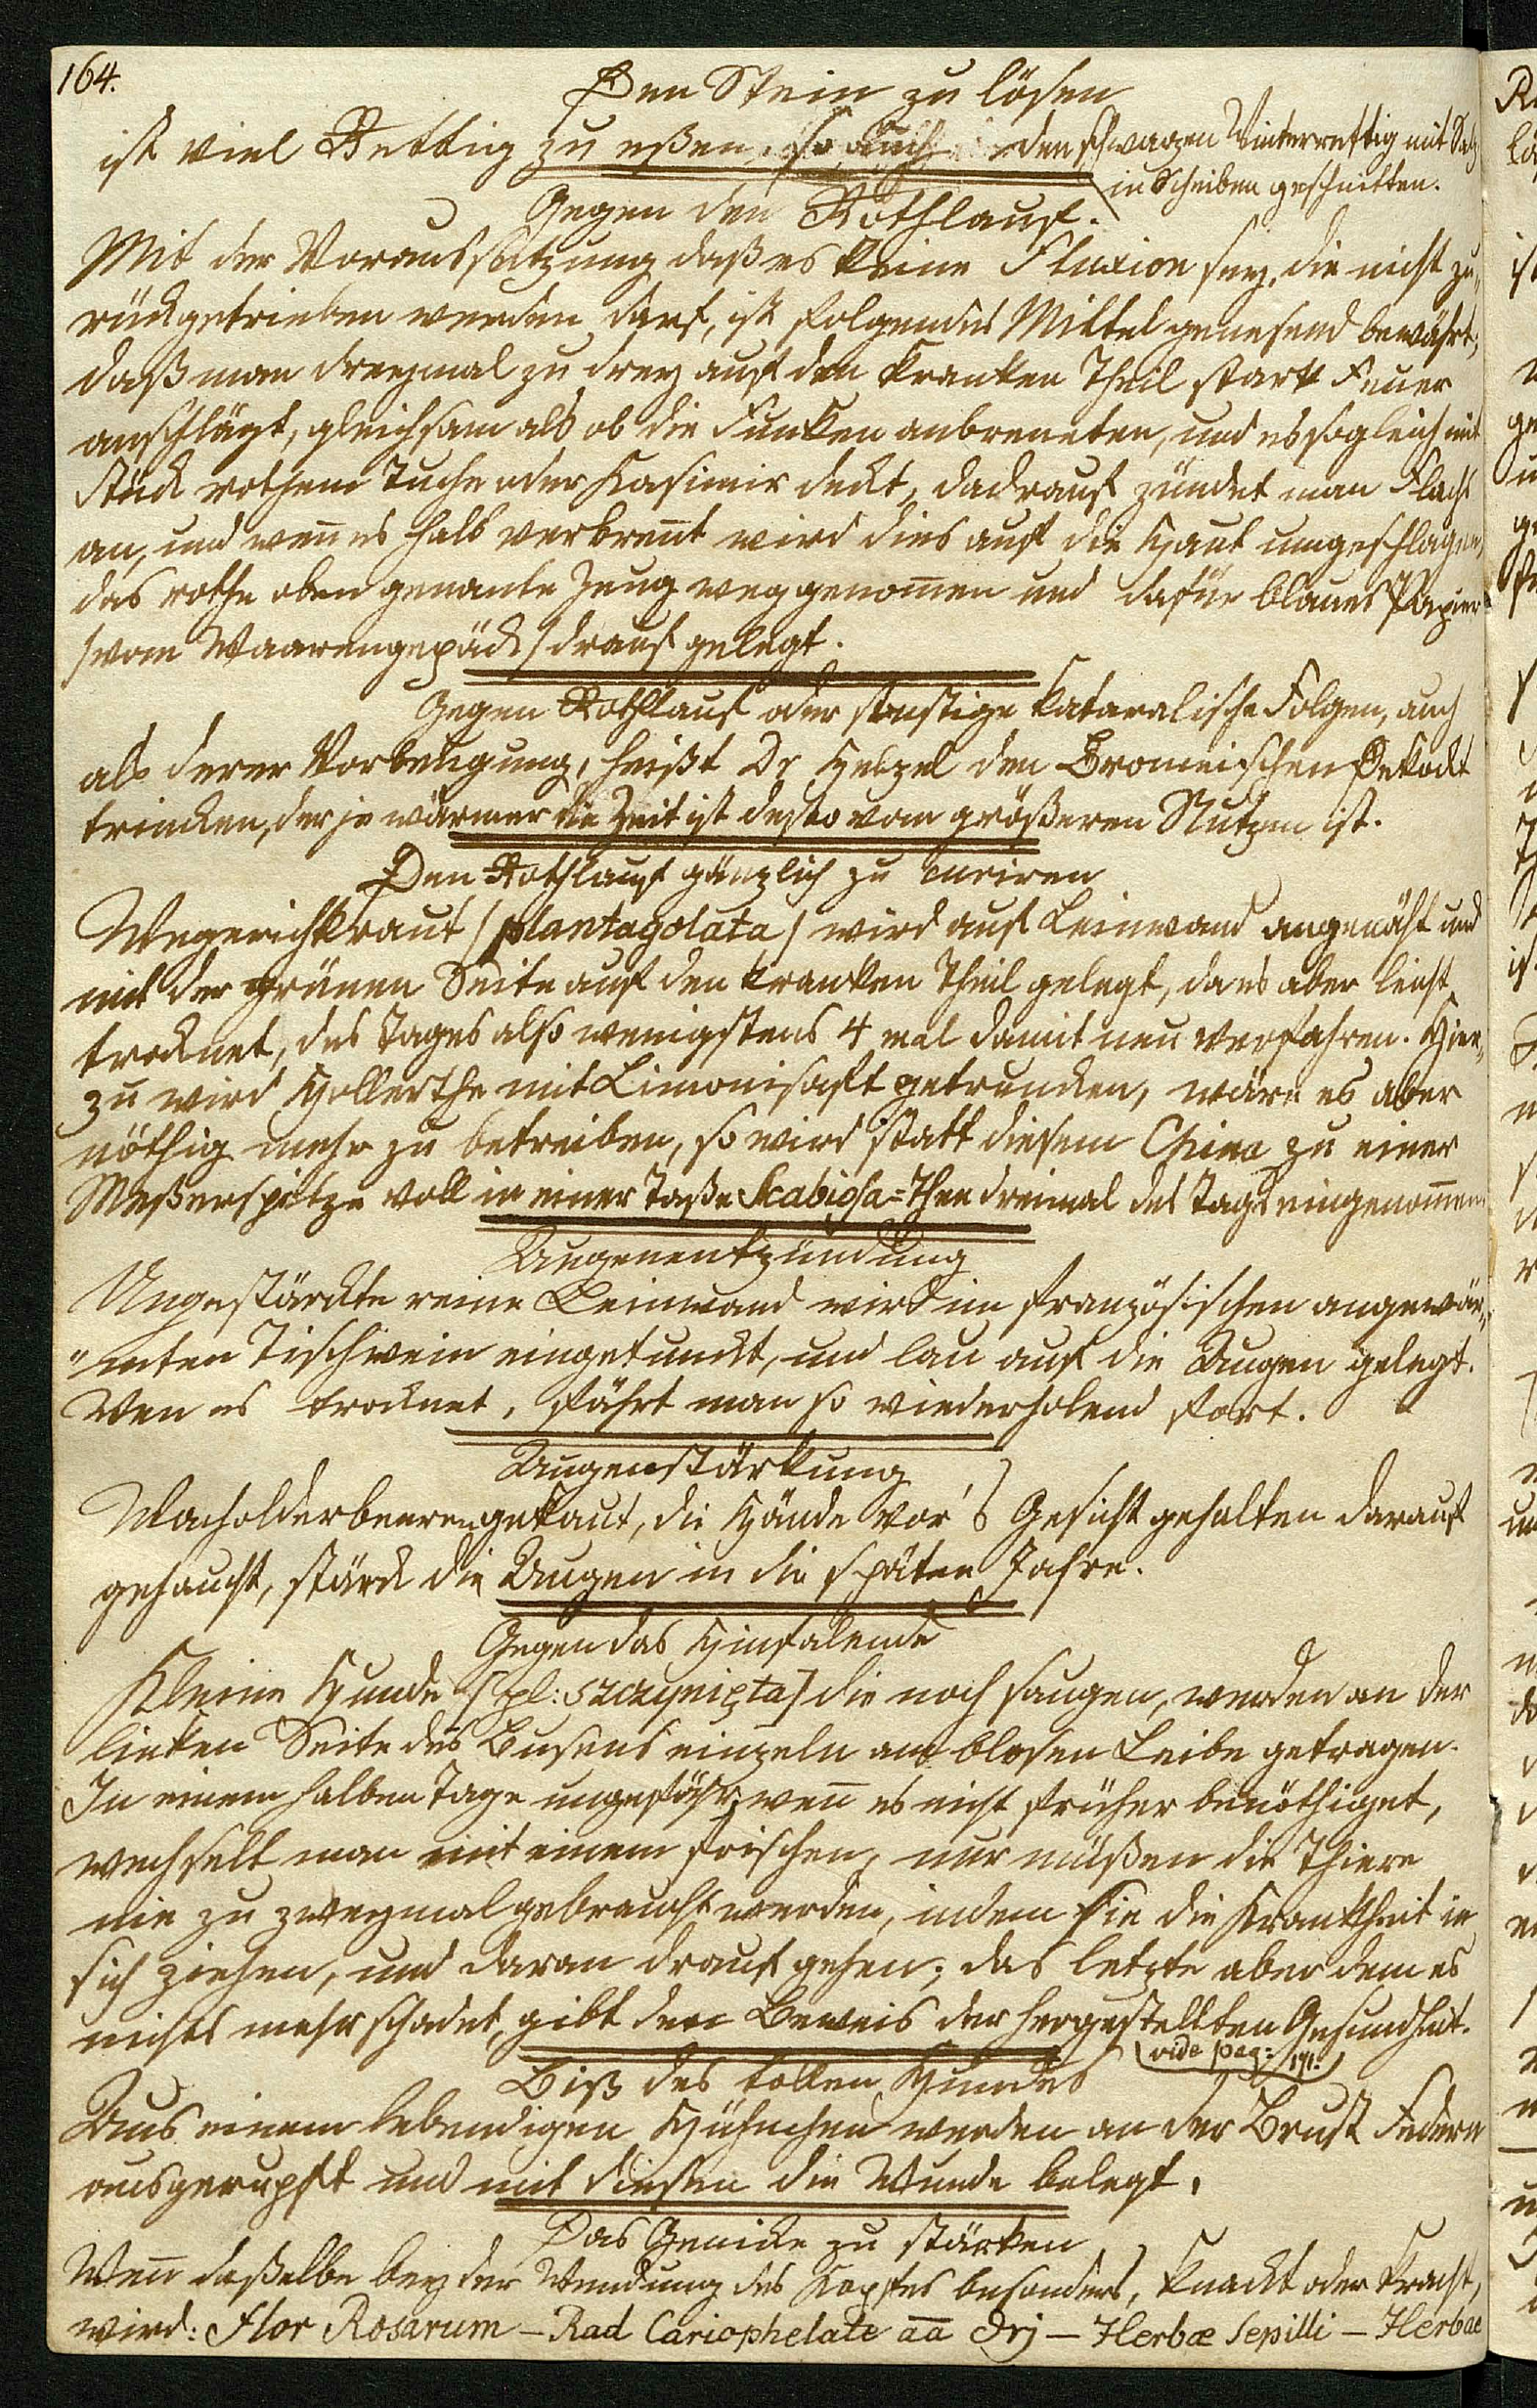 164.
Den Stein zu lösen
ist viel Rettig zu eßen, so auch den schwarzen Winterrettig mit Salz
in Scheiben geschnitten.
Gegen den Rothlauf.
Mit der Voraussetzung daß es keine Fluxion sey, die nicht zu„
rückgetrieben werden darf, ist folgendes Mittel genesend bewährt,
daß man dreymal zu drey auf den kranken Theil stark Feuer
anschlägt, gleichsam als ob die Funken anbreneten, und es sogleich mit
Stück rothem Tuche oder Kasimir deckt, dadrauf zündet man Flachs
an, und weñ es halb verbreñt wird dies auf die Haut umgeschlagen,
das rothe oben genante Zeug weggenom̄en und dafür blaues Papier
/vom Waarengepäck/ drauf gelegt.
Gegen Rothlauf oder sonstige kataralische Folgen, auch
als derer Vorbeugung, heißt Dr Helzel den Bromeischen Dekockt
trincken, der je wärmer die Zeit ist desto vom größeren Nutzen ist.
Den Rothlauf gänzlich zu curiren
Wegerichkraut /plantagolata/ wird auf Leinwand angenäht und
mit der grünen Seite auf den kranken Theil gelegt, da es aber leicht
trocknet, des Tages also wenigstens 4 mal damit neu verfahren. Hier„
zu wird Hollerthe mit Limonisaft getruncken, wäre es aber
nöthig mehr zu betreiben, so wird statt diesem China zu einer
Meßerspitze voll in einer Taße Scabiosa=Thee dreimal des Tags eingenom̄en
Augenentzündung
Ungestärckte reine Leinwand wird im französischen angewär„
„mten Tischwein eingetunckt, und lau auf die Augen gelegt.
Wen es trocknet, fährt man so wiederholend fort.
Augenstärkung
Wacholderbeeren gekaut, die Hände vor's Gesicht gehalten darauf
gehaucht, stärck die Augen in die späten Jahre.
Gegen das Hinfalende
Kleine Hunde /pl: szczenięta/ die noch saugen, werden an der
linken Seite des Busens einzeln am blosen Leibe getragen.
In einem halben Tage ungefähr, weñ es nicht früher benöthiget,
wechselt man mit einem frischen, nur müßen die Thiere
nie zu zweymal gebraucht werden, indem sie die Krankheit in
sich ziehen, und daran drauf gehen; das letzte aber dem es
nichts mehr schadet, gibt den Beweis der hergestellten Gesundheit.
vide pag: 171.
Biß des tollen Hundes
Aus einem lebendigen Hühnchen werden an der Brust Federn
ausgerupft und mit diesen die Wunde belegt.
Das Genicke zu stärken
Weñ daßelbe bey der Wendung des Kopfes besonders, knackt oder kracht,
wird: Flor Rosarum – Rad Cariophelate āā Drj – Herbæ Sepilli – Herbae